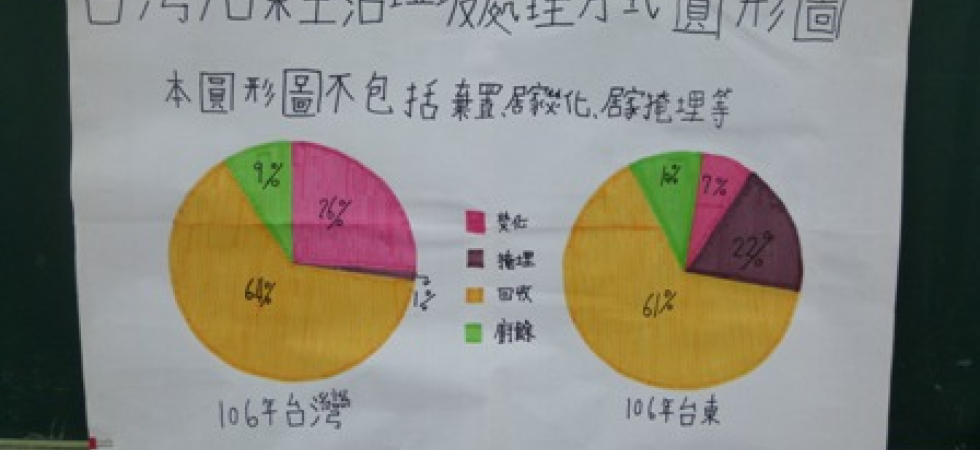 台灣及台東生活垃圾處理方式圓形圖
本圓形圖不包括棄置、居家焚化、居家掩埋等
9%
26%
1%
64%
焚化
掩埋
回收
廚餘
7%
22%
61%
106年台灣
106年台東